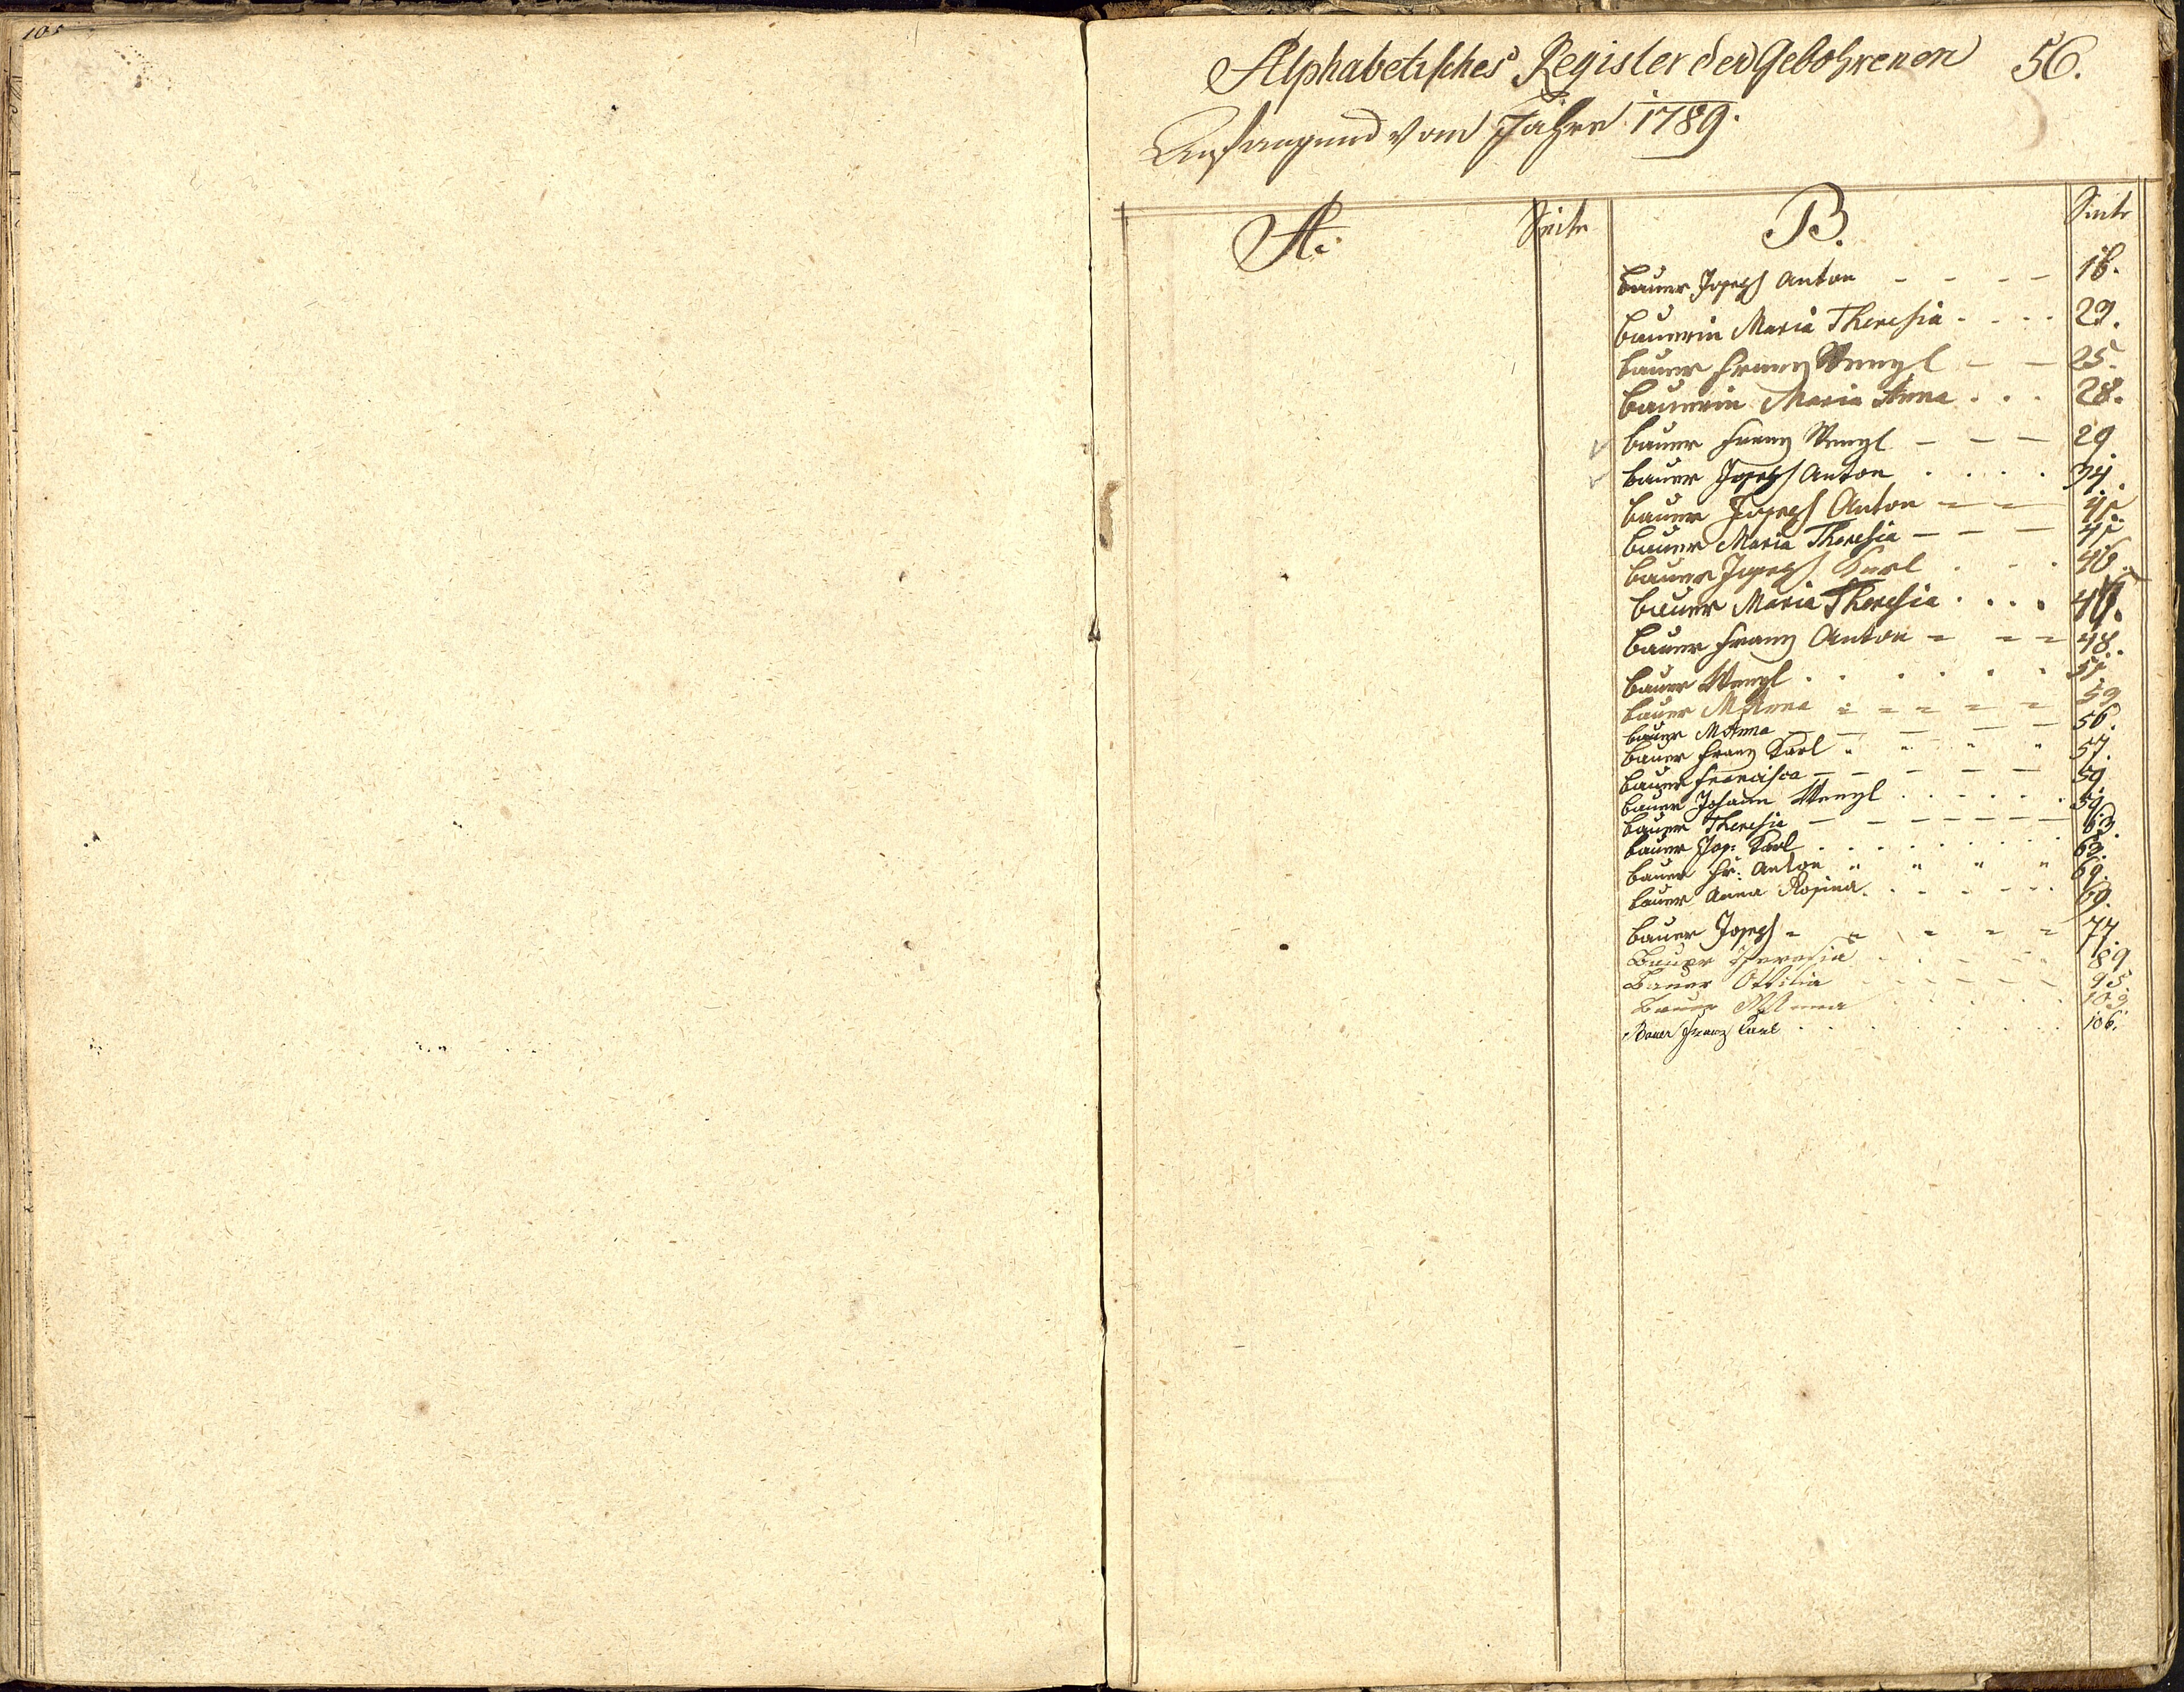 105
Alphabetisches Register der Gebohrenen 56.
Anfangend vom Jahre 1789.
A. Seite B. Seite
Bauer Joseph Anton - - - - 16.
Bauerin Maria Theresia . . . . 29.
Bauer Franz Wenzl - - 25.
Bauerin Maria Anna . . . 28.
Bauer Franz Wenzl - - - 29
Bauer Joseph Anton . . . . 34.
Bauer Joseph Anton - - 45
Bauer Maria Theresia - - - 45
Bauer Joseph Karl . . . 46.
Bauer Maria Theresia . . . .
Bauer Franz Anton = = = 48.
Bauer Wenzl . . . . . . 55
Bauer M Anna = = = = = 59
Bauer M Anna - - - - 56.
Bauer Franz Karl " " " " 57.
Bauer Francisca - - - - - 59
Bauer Johann Wenzl . . . . . . 59.
Bauer Theresia - - - - - - - 63.
Bauer Jos: Karl . . . . . . . . 63.
Bauer Fr: Anton " " " " 69.
Bauer Anna Rosina . . . . . . 69.
Bauer Joseph = = = = = 77.
Bauer Theresia . . . . . 89
Bauer Ottilia - - - - - - 95.
Bauer M Anna . . . . . 103
Bauer Franz Karl . . . . . . 106.